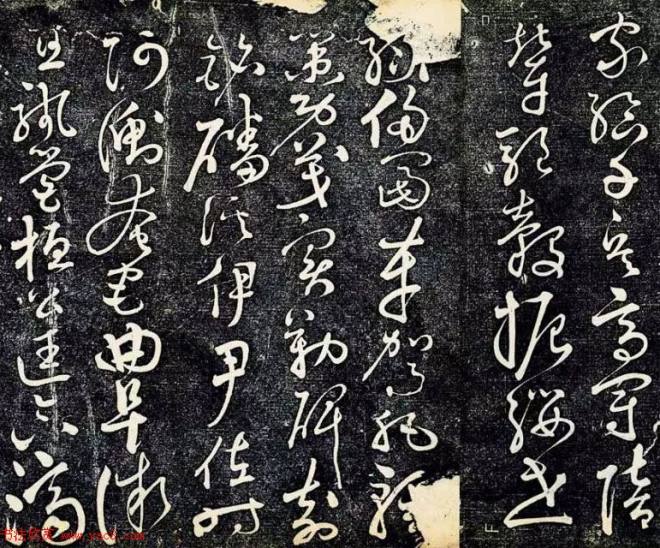 家給千兵高冠陪
輦驅轂振纓世
祿侈富車駕肥輕
策功茂實勒碑刻
銘磻溪伊尹佐時
阿衡奄宅曲阜微
旦孰營桓公匡合濟